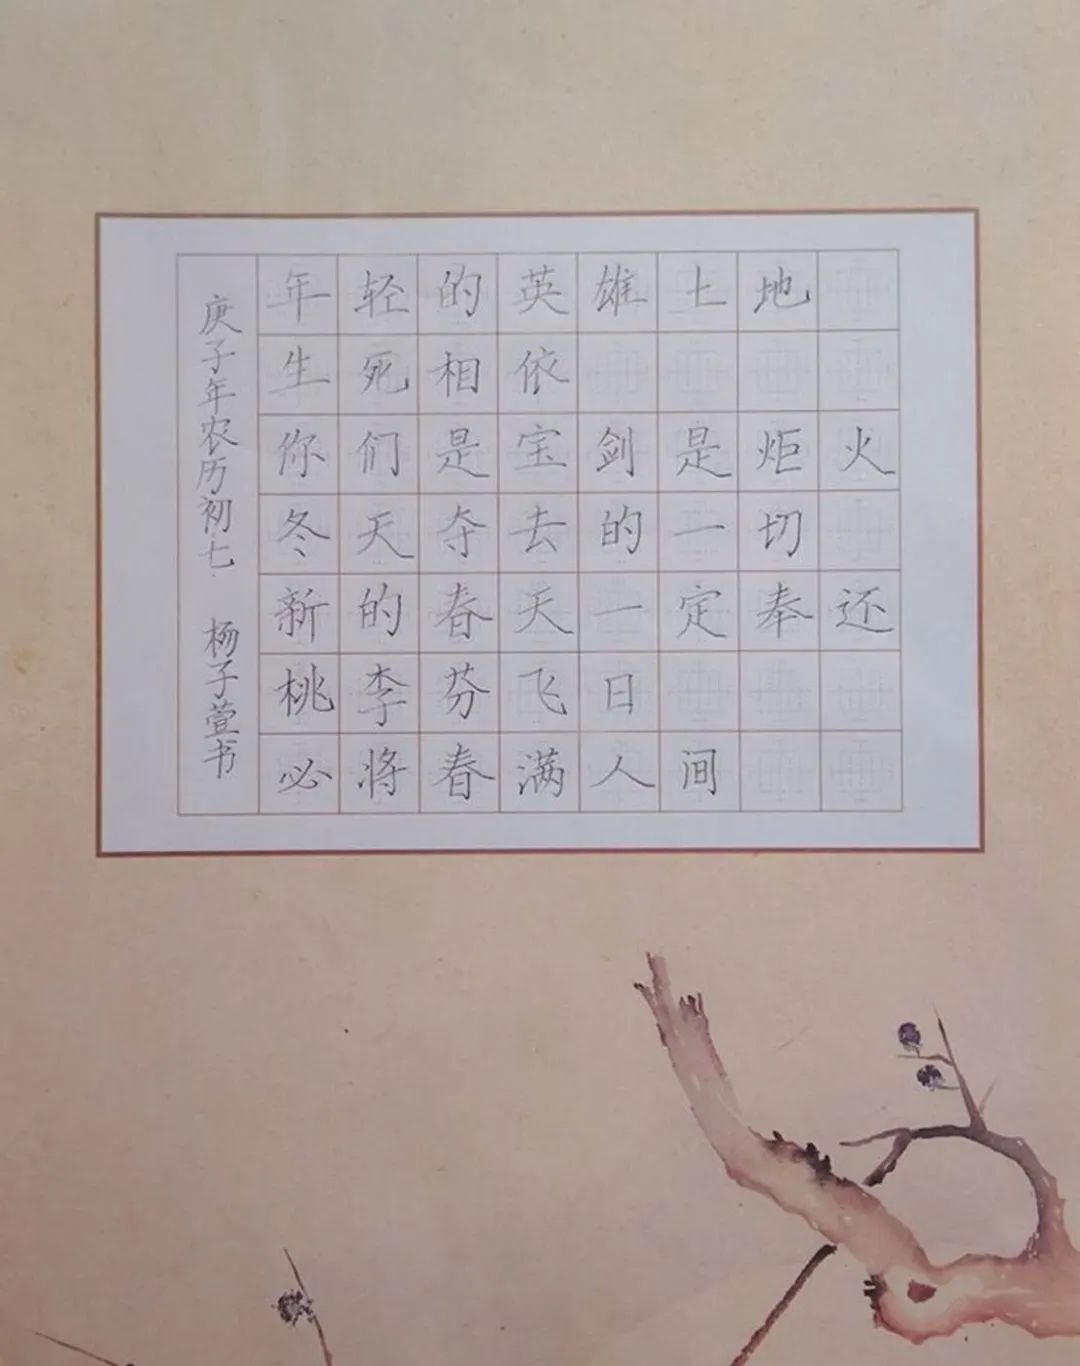 年轻的英雄土地
生死相依
你们是宝剑是炬火
冬天夺去的一切
新的春天一定奉还
桃李芬飞日
必将春满人间
庚子年农历初七 杨子萱书